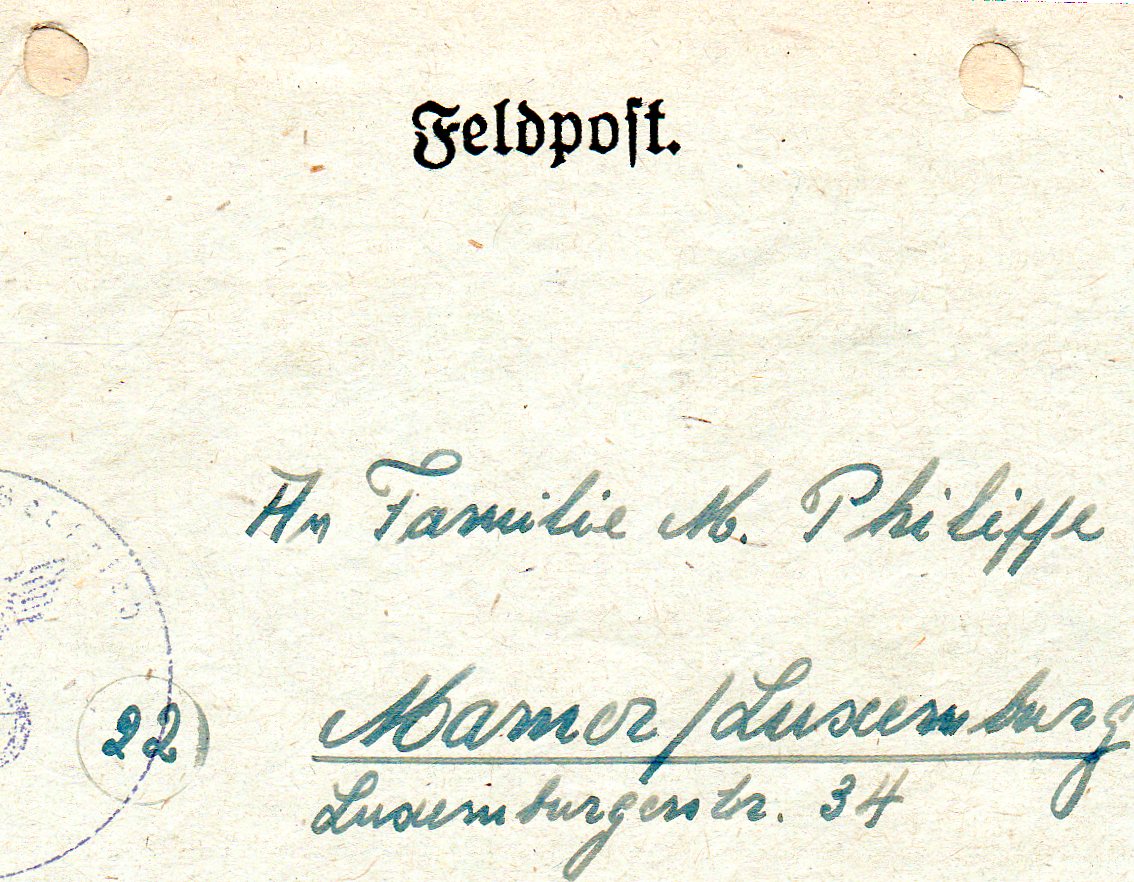 Feldpost.
An Familie M. Philippe
22
Mamer/Luxemburg
Luxemburgerstr. 34